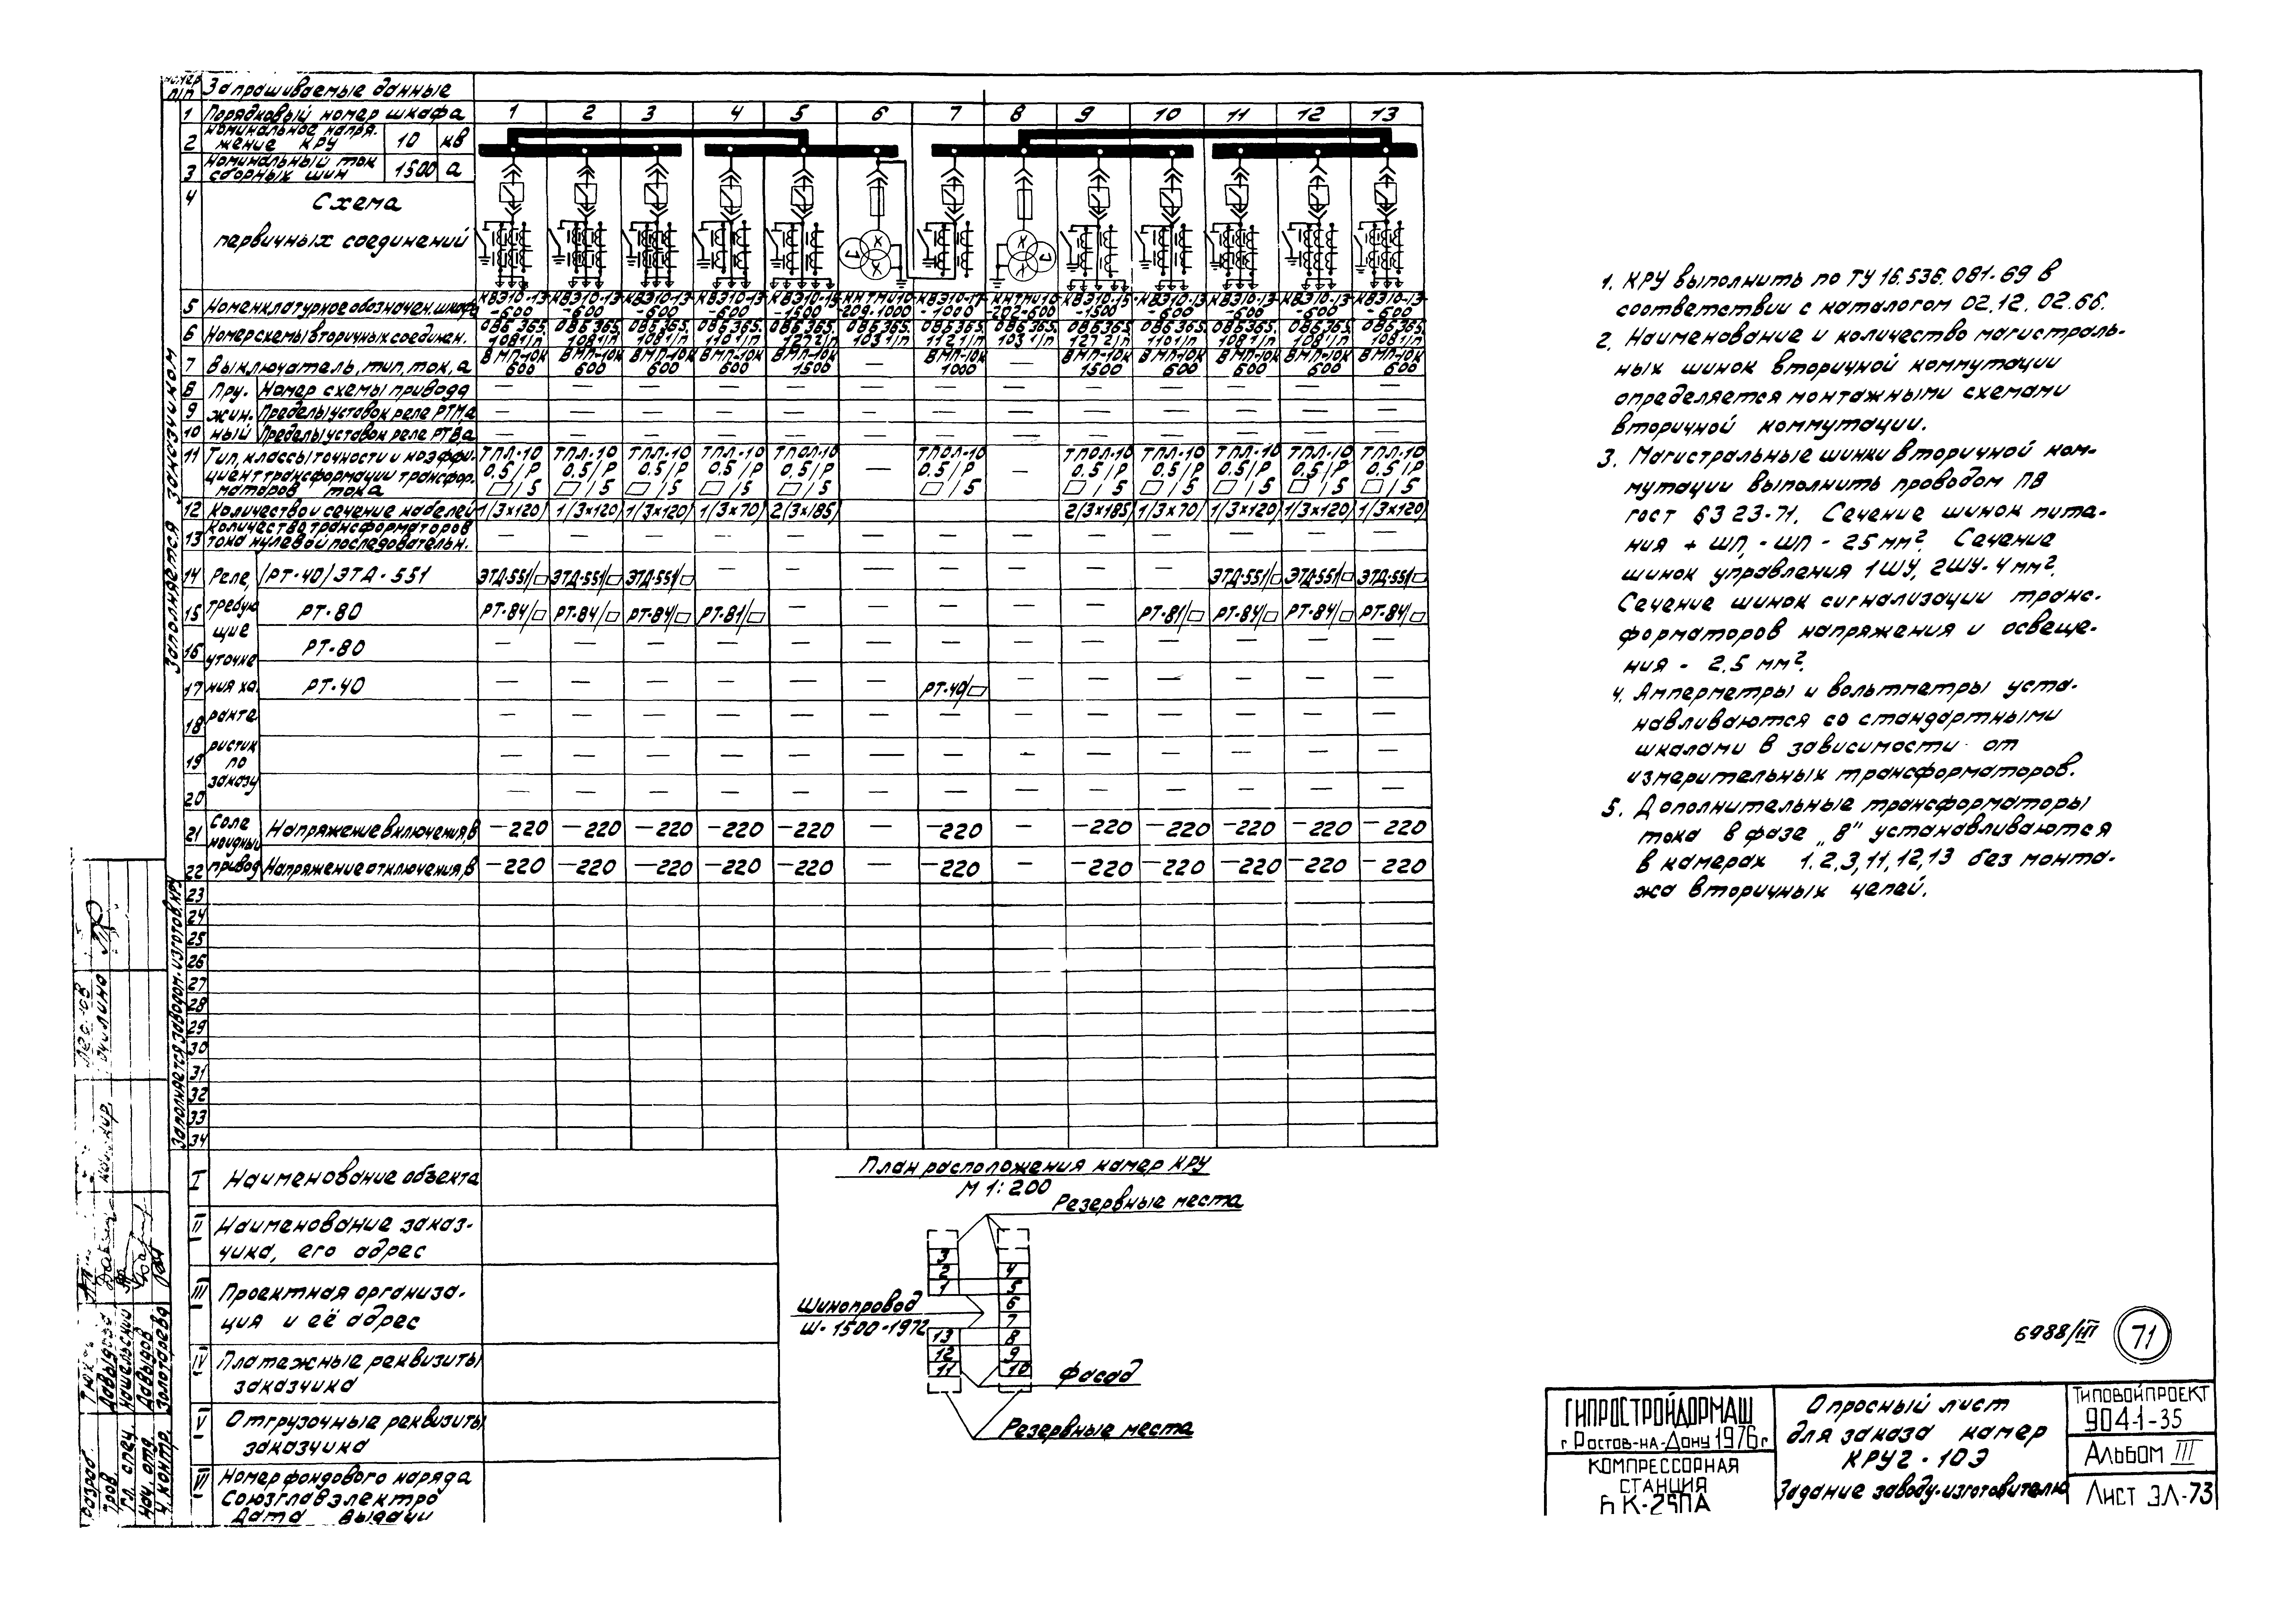 номер п/п Запрашиваемые данные
1 Порядковый номер шкафа 1 2 3 4 5 6 7 8 9 10 11 12 13
2 номинальное напряжение КРУ 10 кв
3 номинальный ток сборных шин 1500 а
4 Схема
первичных соединений
5 Номенклатурное обозначен. шкафа КВЭ10-13-600 КВЭ10-13-600 КВЭ10-13-600 КВЭ10-13-600 КВЭ10-15-1500 КНТМИ10-209-1000 КВЭ10-17-1000 КНТМИ10-202-600 КВЭ10-15-1500 КВЭ10-13-600 КВЭ10-13-600 КВЭ10-13-600 КВЭ10-13-600
6 Номер схемы вторичных соединен. 0ВБ365.1081/п 0ВБ365.1081/п 0ВБ365.1081/п 0ВБ365.1101/п 0ВБ365.1272/п 0ВБ365.1031/п 0ВБ365.1121/п 0ВБ365.1031/п 0ВБ365.1272/п 0ВБ365.1101/п 0ВБ365.1081/п 0ВБ365.1081/п 0ВБ365.1081/п
7 Выключатель, тип, ток, а ВМП-10К 600 ВМП-10К 600 ВМП-10К 600 ВМП-10К 600 ВМП-10К 1500 — ВМП-10К 1000 — ВМП-10К 1500 ВМП-10К 600 ВМП-10К 600 ВМП-10К 600 ВМП-10К 600
8 Пру- Номер схемы привода — — — — — — — — — — — — —
9 жин- Пределы уставок реле РТМ, а — — — — — — — — — — — — —
10 ный Пределы уставок реле РТВ, а — — — — — — — — — — — — —
11 Тип, классы точности и коэффи-
циент трансформации трансфор-
маторов тока
ТПЛ-10 0.5/Р □/5 ТПЛ-10 0.5/Р □/5 ТПЛ-10 0.5/Р □/5 ТПЛ-10 0.5/Р □/5 ТПОЛ-10 0.5/Р □/5 — ТПОЛ-10 0.5/Р □/5 — ТПОЛ-10 0.5/Р □/5 ТПЛ-10 0.5/Р □/5 ТПЛ-10 0.5/Р □/5 ТПЛ-10 0.5/Р □/5 ТПЛ-10 0.5/Р □/5
12 Количество и сечение кабелей 1(3×120) 1(3×120) 1(3×120) 1(3×70) 2(3×185) 2(3×185) 1(3×70) 1(3×120) 1(3×120) 1(3×120)
13 Количество трансформаторов
тока нулевой последовательн. — — — — — — — — — — — — —
14 Реле, /РТ-40/ЭТД-551 ЭТД-551/□ ЭТД-551/□ ЭТД-551/□ — — — — — — — ЭТД-551/□ ЭТД-551/□ ЭТД-551/□
15 требую РТ-80 РТ-84/□ РТ-84/□ РТ-84/□ РТ-81/□ — — — — — РТ-81/□ РТ-84/□ РТ-84/□ РТ-84/□
щие
16 уточне РТ-80 — — — — — — — — — — — — —
17 ния ха- РТ-40 — — — — — — РТ-40/□ — — — — — —
18 ракте- — — — — — — — — — — — — —
19 ристик по — — — — — — — — — — — — —
20 заказу — — — — — — — — — — — — —
21 соле Напряжение включения, в —220 —220 —220 —220 —220 — —220 — —220 —220 —220 —220 —220
ноидный
22 привод Напряжение отключения, в —220 —220 —220 —220 —220 — —220 — —220 —220 —220 —220 —220
23
24
25
26
27
28
29
30
31
32
33
34
Заполняется заказчиком
Заполняется заводом-изготов. КРУ
I Наименование объекта
II Наименование заказ-
чика, его адрес
III Проектная организа-
ция и её адрес
IV Платежные реквизиты
заказчика
V Отгрузочные реквизиты
заказчика
VI Номер фондового наряда
Союзглавэлектро
Дата выдачи
План расположения камер КРУ
М 1:200
Резервные места
3
2 4
1 5
6
7
13 8
12 9
11 10
Шинопровод
Ш-1500-1972
Фасад
Резервные места
1. КРУ выполнить по ТУ 16.536.081-69 в
соответствии с каталогом 02.12.02.66.
2. Наименование и количество магистраль-
ных шинок вторичной коммутации
определяется монтажными схемами
вторичной коммутации.
3. Магистральные шинки вторичной ком-
мутации выполнить проводом ПВ
гост 6323-71. Сечение шинок пита-
ния + ШП, - ШП - 25 мм². Сечение
шинок управления 1ШУ, 2ШУ-4 мм².
Сечение шинок сигнализации транс-
форматоров напряжения и освеще-
ния - 2.5 мм².
4. Амперметры и вольтметры уста-
навливаются со стандартными
шкалами в зависимости от
измерительных трансформаторов.
5. Дополнительные трансформаторы
тока в фазе „В" устанавливаются
в камерах 1.2.3,11,12,13 без монта-
жа вторичных цепей.
6988/III 71
ГИПРОСТРОЙДОРМАШ
г. Ростов-на-Дону 1976 г
КОМПРЕССОРНАЯ
СТАНЦИЯ
6 К-25ПА
Опросный лист
для заказа камер
КРУ2-10Э
Задание заводу-изготовителю
Типовой проект
904-1-35
Альбом III
Лист ЭЛ-73
Разраб.
Пров. Давыдова
Гл. спец.
Нач. отд. Давыдов
Н. контр. Золотарева